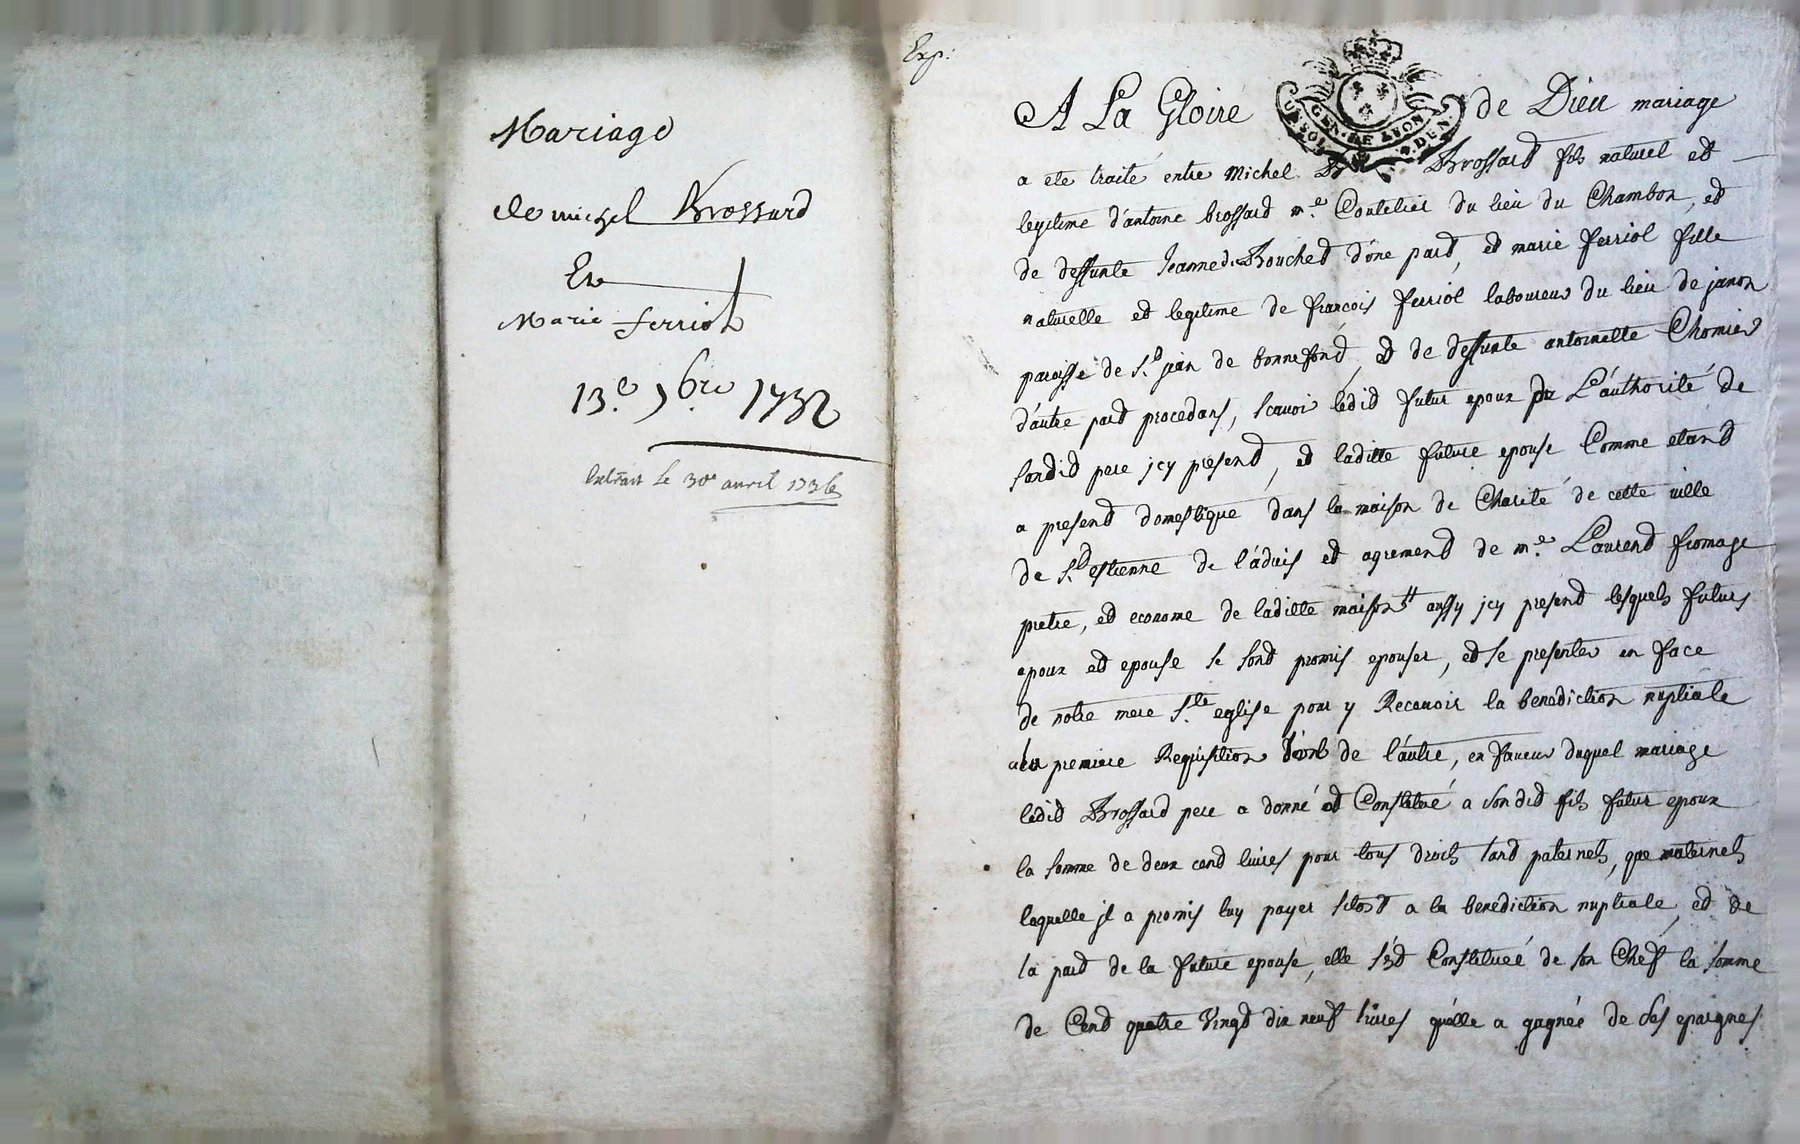 Mariage
de michel Brossard
Et
Marie ferriol
13.e 9bre 1732
Extrait le 30e avril 1736
Exp.
A La Gloire de Dieu mariage
a ete traité entre Michel Brossard fils naturel et
legitime d'antoine brossard me. Coutelier du lieu du Chambon, et
de deffunte Jeanne Bouchet d'une part, et marie ferriol fille
naturelle et legitime de françois ferriol laboureur du lieu de janon
paroisse de St. jean de bonnefond, et de deffunte antoinette Chomier
d'autre part procedans, scavoir ledit futur epoux de L'authorité de
sondit pere jcy present, et laditte future epouse Comme etant
a present domestique dans la maison de Charité de cette ville
de St. estienne de l'advis et agrement de me. Laurent fromage
pretre, et econome de laditte maison aussy jcy present lesquels futurs
epoux et epouse se sont promis epouser, et se presenter en face
de notre mere Ste. eglise pour y Recevoir la benediction nuptiale
a la premiere Requisition l'un de l'autre, en faveur duquel mariage
ledit Brossard pere a donné et Constitué a son dit fils futur epoux
la somme de deux cent livres pour tous droits tant paternels, que maternels
laquelle jl a promis luy payer sitost a la benediction nuptiale, et de
la part de la future epouse, elle s'est Constituée de son Chef la somme
de Cent quatre Vingt dix neuf livres qu'elle a gagnée de ses epargnes
GEN. DE LYON